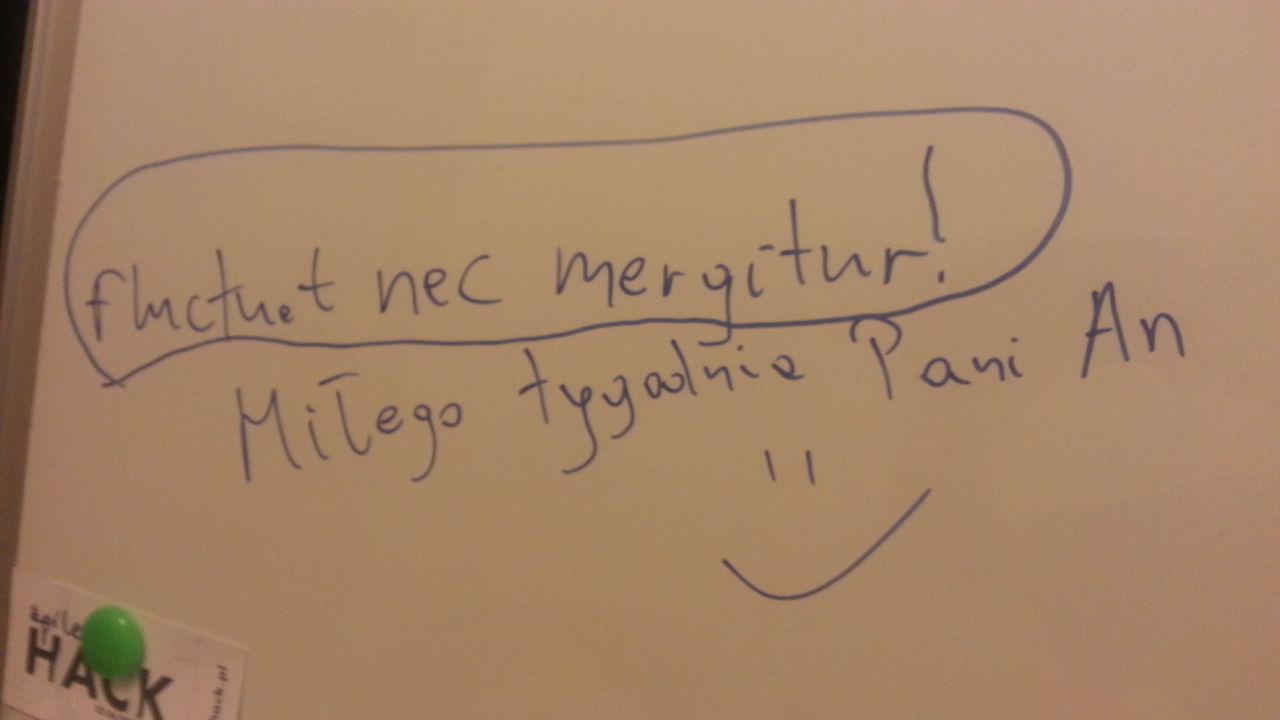 fluctuat nec mergitur!
Miłego tygodnia Pani An
agile
HACK
hack.pl